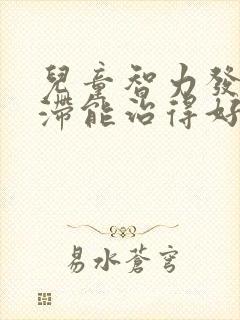 兒童智力發
滯能治得好
易水蒼穹